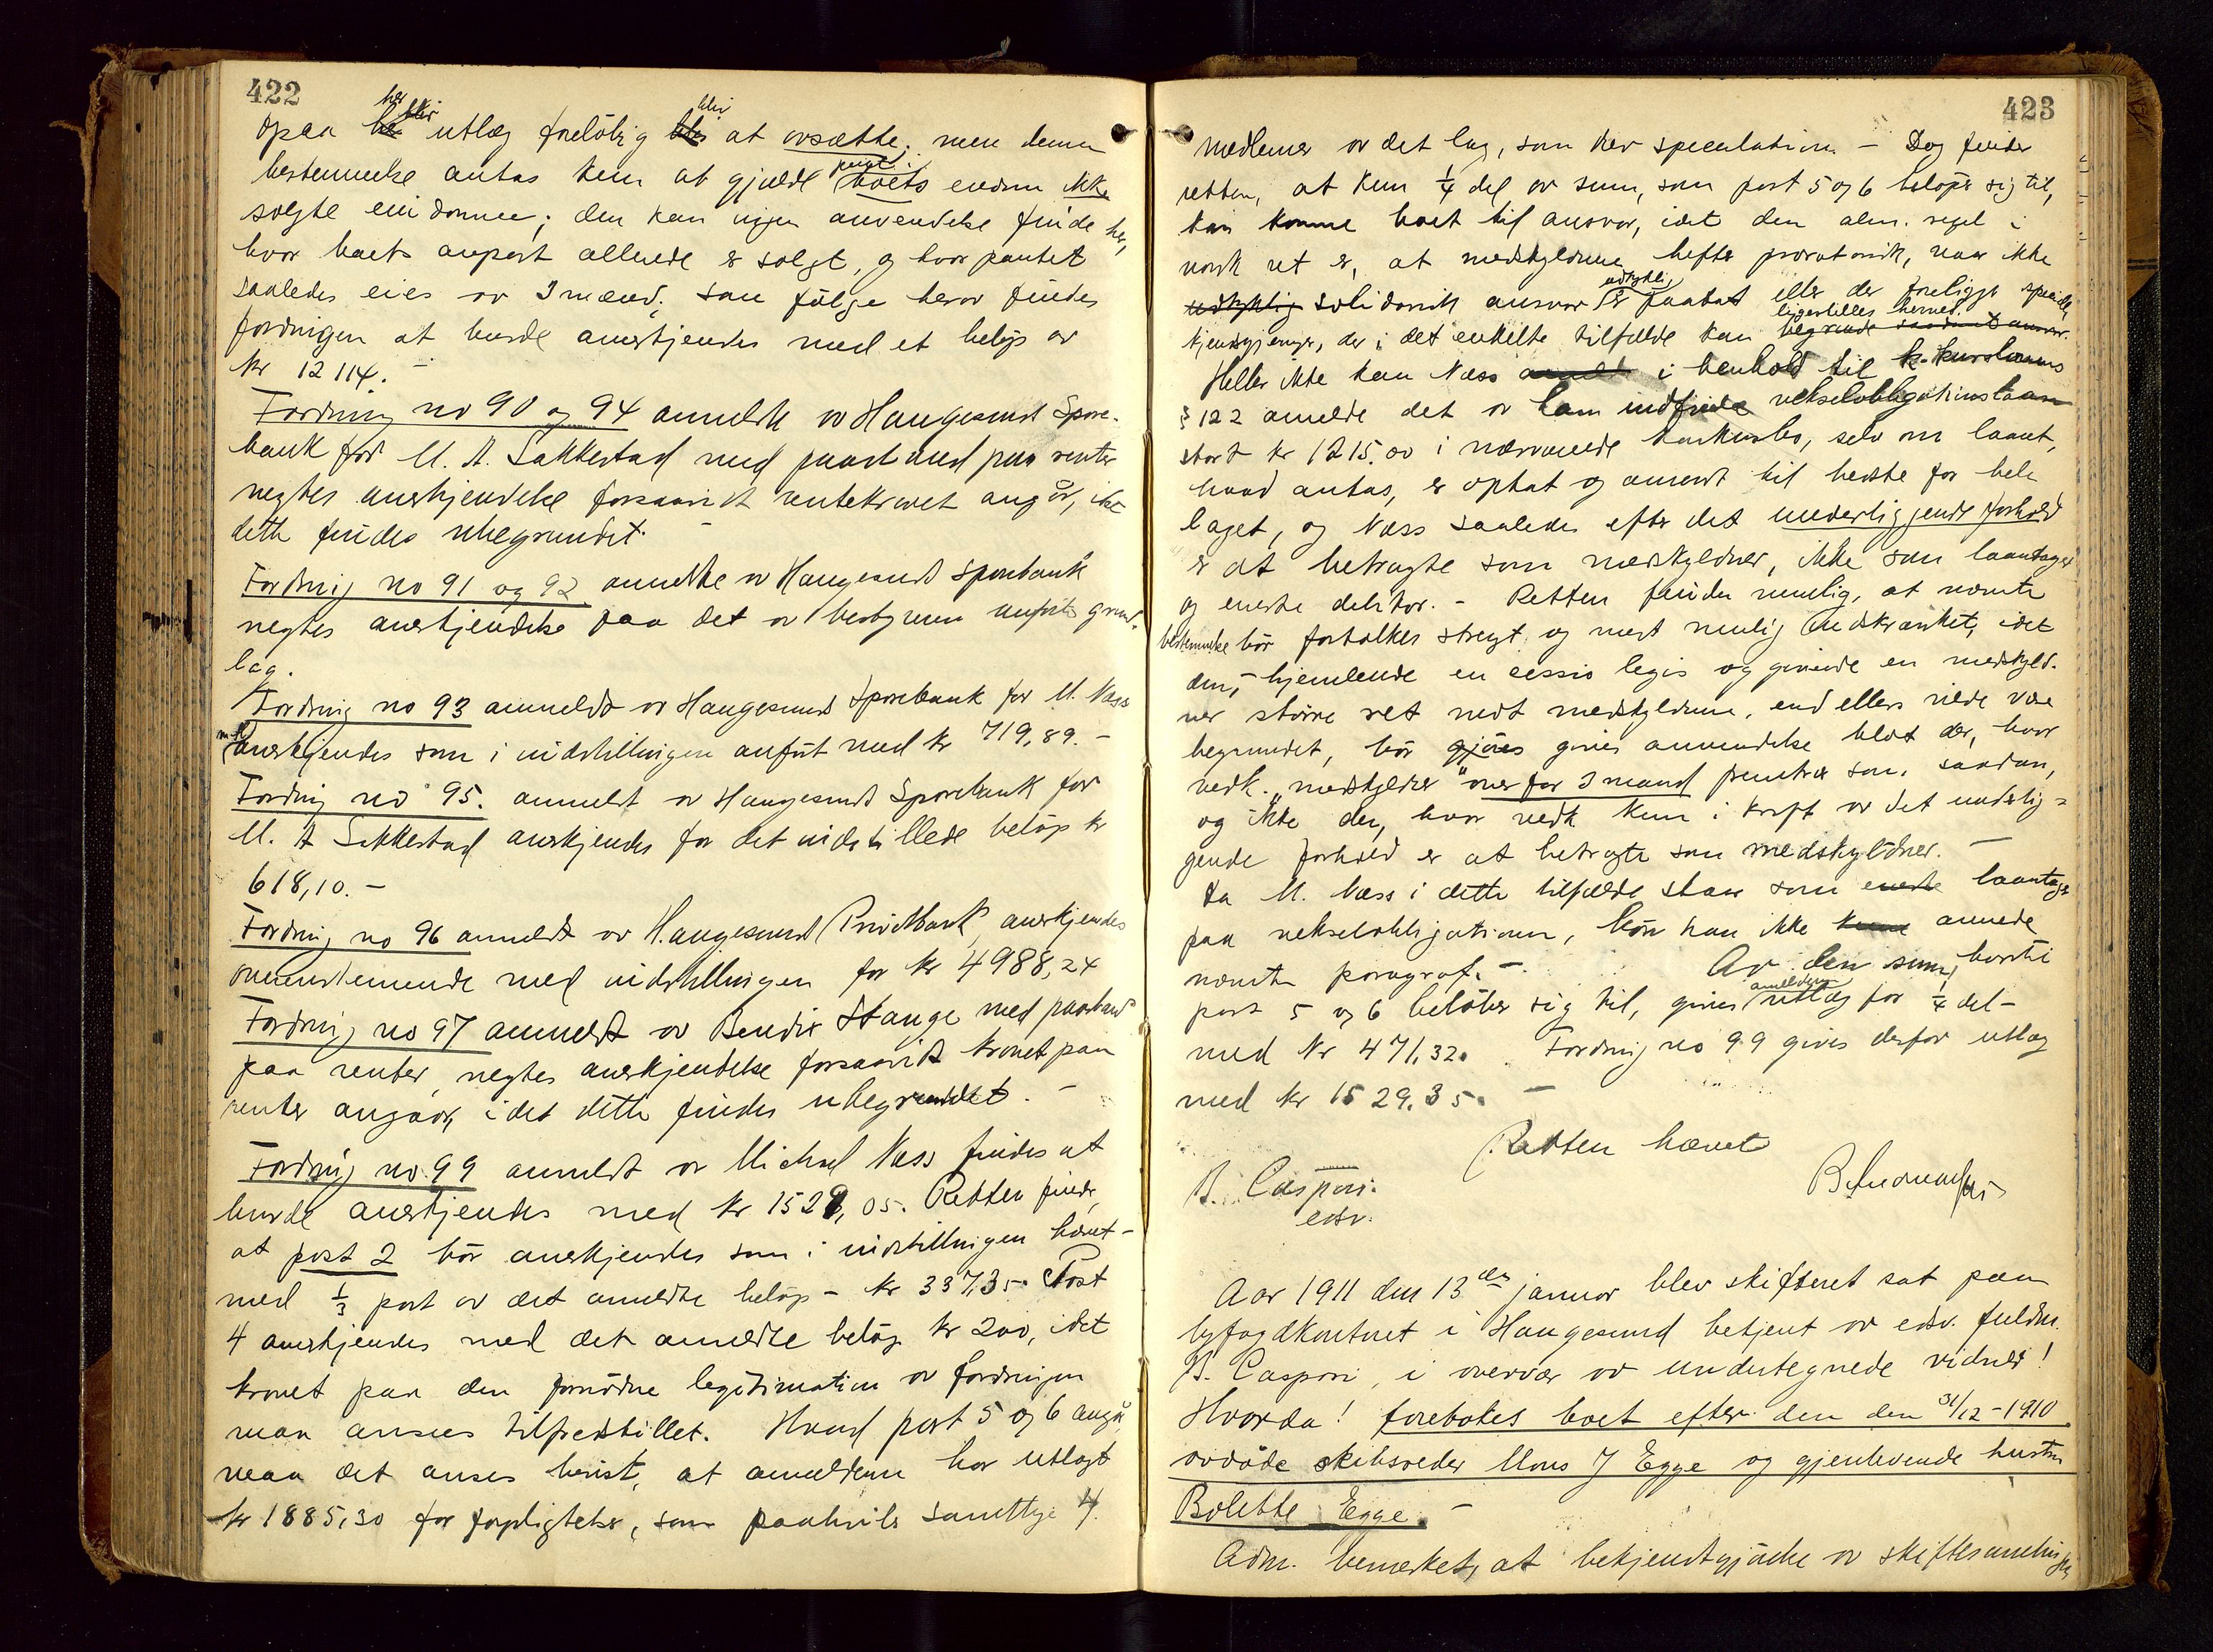 422
opaa her blir utlæg foreløbig blir at avsætte; men denne
bestemmelse antas kun at gjælde boets endnu ikke
solgte eiendomme; den kan ingen anvendelse finde her,
hvor boets anpart allerede er solgt, og hvor pantet
saaledes eies av 3mand; som følge herav findes
fordringen at burde anerkjendes med et beløp av
kr 12114. –
Fordring no 90 og 94 anmeldt av Haugesund Spare-
bank for M. A. Sakkestad med paastand paa renter
negtes anerkjendelse forsaavidt rentekravet angår, idet
dette findes ubegrundet. –
Fordring no 91 og 92 anmeldte av Haugesund Sparebank
negtes anerkjendelse paa det av bestyreren anførte grund-
lag.
Fordring no 93 anmeldt av Haugesund Sparebank for M. Næss
anerkjendes som i indstillingen anført med kr 719,89. –
Fordring no 95. anmeldt av Haugesund Sparebank for
M. A Sakkestad anerkjendes for det indstillede beløp kr
618,10. –
Fordring no 96 anmeldt av Haugesund Privatbank anerkjendes
overensstemmende med indstillingen for kr 4988,24
Fordring no 97 anmeldt av Bendix Stange med paastand
paa renter negtes anerkjendelse forsaavidt kravet paa
renter angåar, idet dette findes ubegrundet. –
Fordring no 99 anmeldt av Michael Næss findes at
burde anerkjendes med kr 1529,05. Retten finder,
at post 2 bør anerkjendes som i indstillingen hævet –
med 1/3 part av det anmeldte beløp – kr 337,35. Post
4 anerkjendes med det anmeldte beløp kr 200, idet
kravet paa den fornødne legitimation av fordringen
maa ansees tilfredstillet. Hvad post 5 og 6 angår,
maa det anses bevist, at anmelderen har utlagt
kr 1885,30 for forpligtelser, som paahviler samtlige 4
423
medlemer av det lag, som drev speculation – Dog finder
retten, at kun 1/4 del av sum, som post 5 og 6 beløper sig til,
kan komme boet til ansvar, idet den alm. regel i
norsk ret er, at medskyldnerne hefter proratarisk, naar ikke
udtrykkelig solidarisk ansvar udtrykkelig er paatat eller der foreligger specielle
kjendsgjerninger, der i det enkelte tilfælde kan ligestilles hermed. begrunde saadant ansvar.
Heller ikke kan Næss anmelde i henhold til k. kurslovens
§ 122 anmelde det av ham indfriede vekselobligationslaan
stort kr 1215.00 i nærværende konkursbo, selv om laanet,
hvad antas, er optat og anvendt til bedste for hele
laget, og Næss saaledes efter det underliggjende forhold
er at betragte som medskyldner, ikke som laantager
og eneste debitor. – Retten finder nemlig, at nævnte
bestemmelse bør fortolkes strengt og mest mulig indskrænket, idet
den, – hjemlende en cessio legis og givende en medskyld-
ner større ret mot medskyldnerne, end ellers vilde være
begrundet, bør gjøres gives anvendelse blot der, hvor
vedk. "medskyldner" overfor 3mand fremtrer som saadan,
og ikke der, hvor vedk kun i kraft av det underlig-
gende forhold er at betragte som medskyldner. –
Da M. Næss i dette tilfælde staar som eneste laantager
paa vekselobligationen, bør han ikke kunne anvende
nævnte paragraf. – Av den sum, hvortil
post 5 og 6 beløber sig til, gives anmelderen utlæg for 1/4 del –
med kr 471,32. Fordring no 99 gives derfor utlæg
med kr 1529.35. –
Retten hævet
B. Caspari.
edsv.
Aar 1911 den 13de januar blev skifteret sat paa
byfogdkontoret i Haugesund betjent av edsv. fuldm.
B. Caspari, i overvær av undertegnede vidner!
Hvorda! foretokes boet efter den den 31/12-1910
avdøde skibsreder Mons J Egge og gjenlevende hustru
Bolette Egge. –
Adm. bemerket, at bekjendtgjørelse av skiftesamling